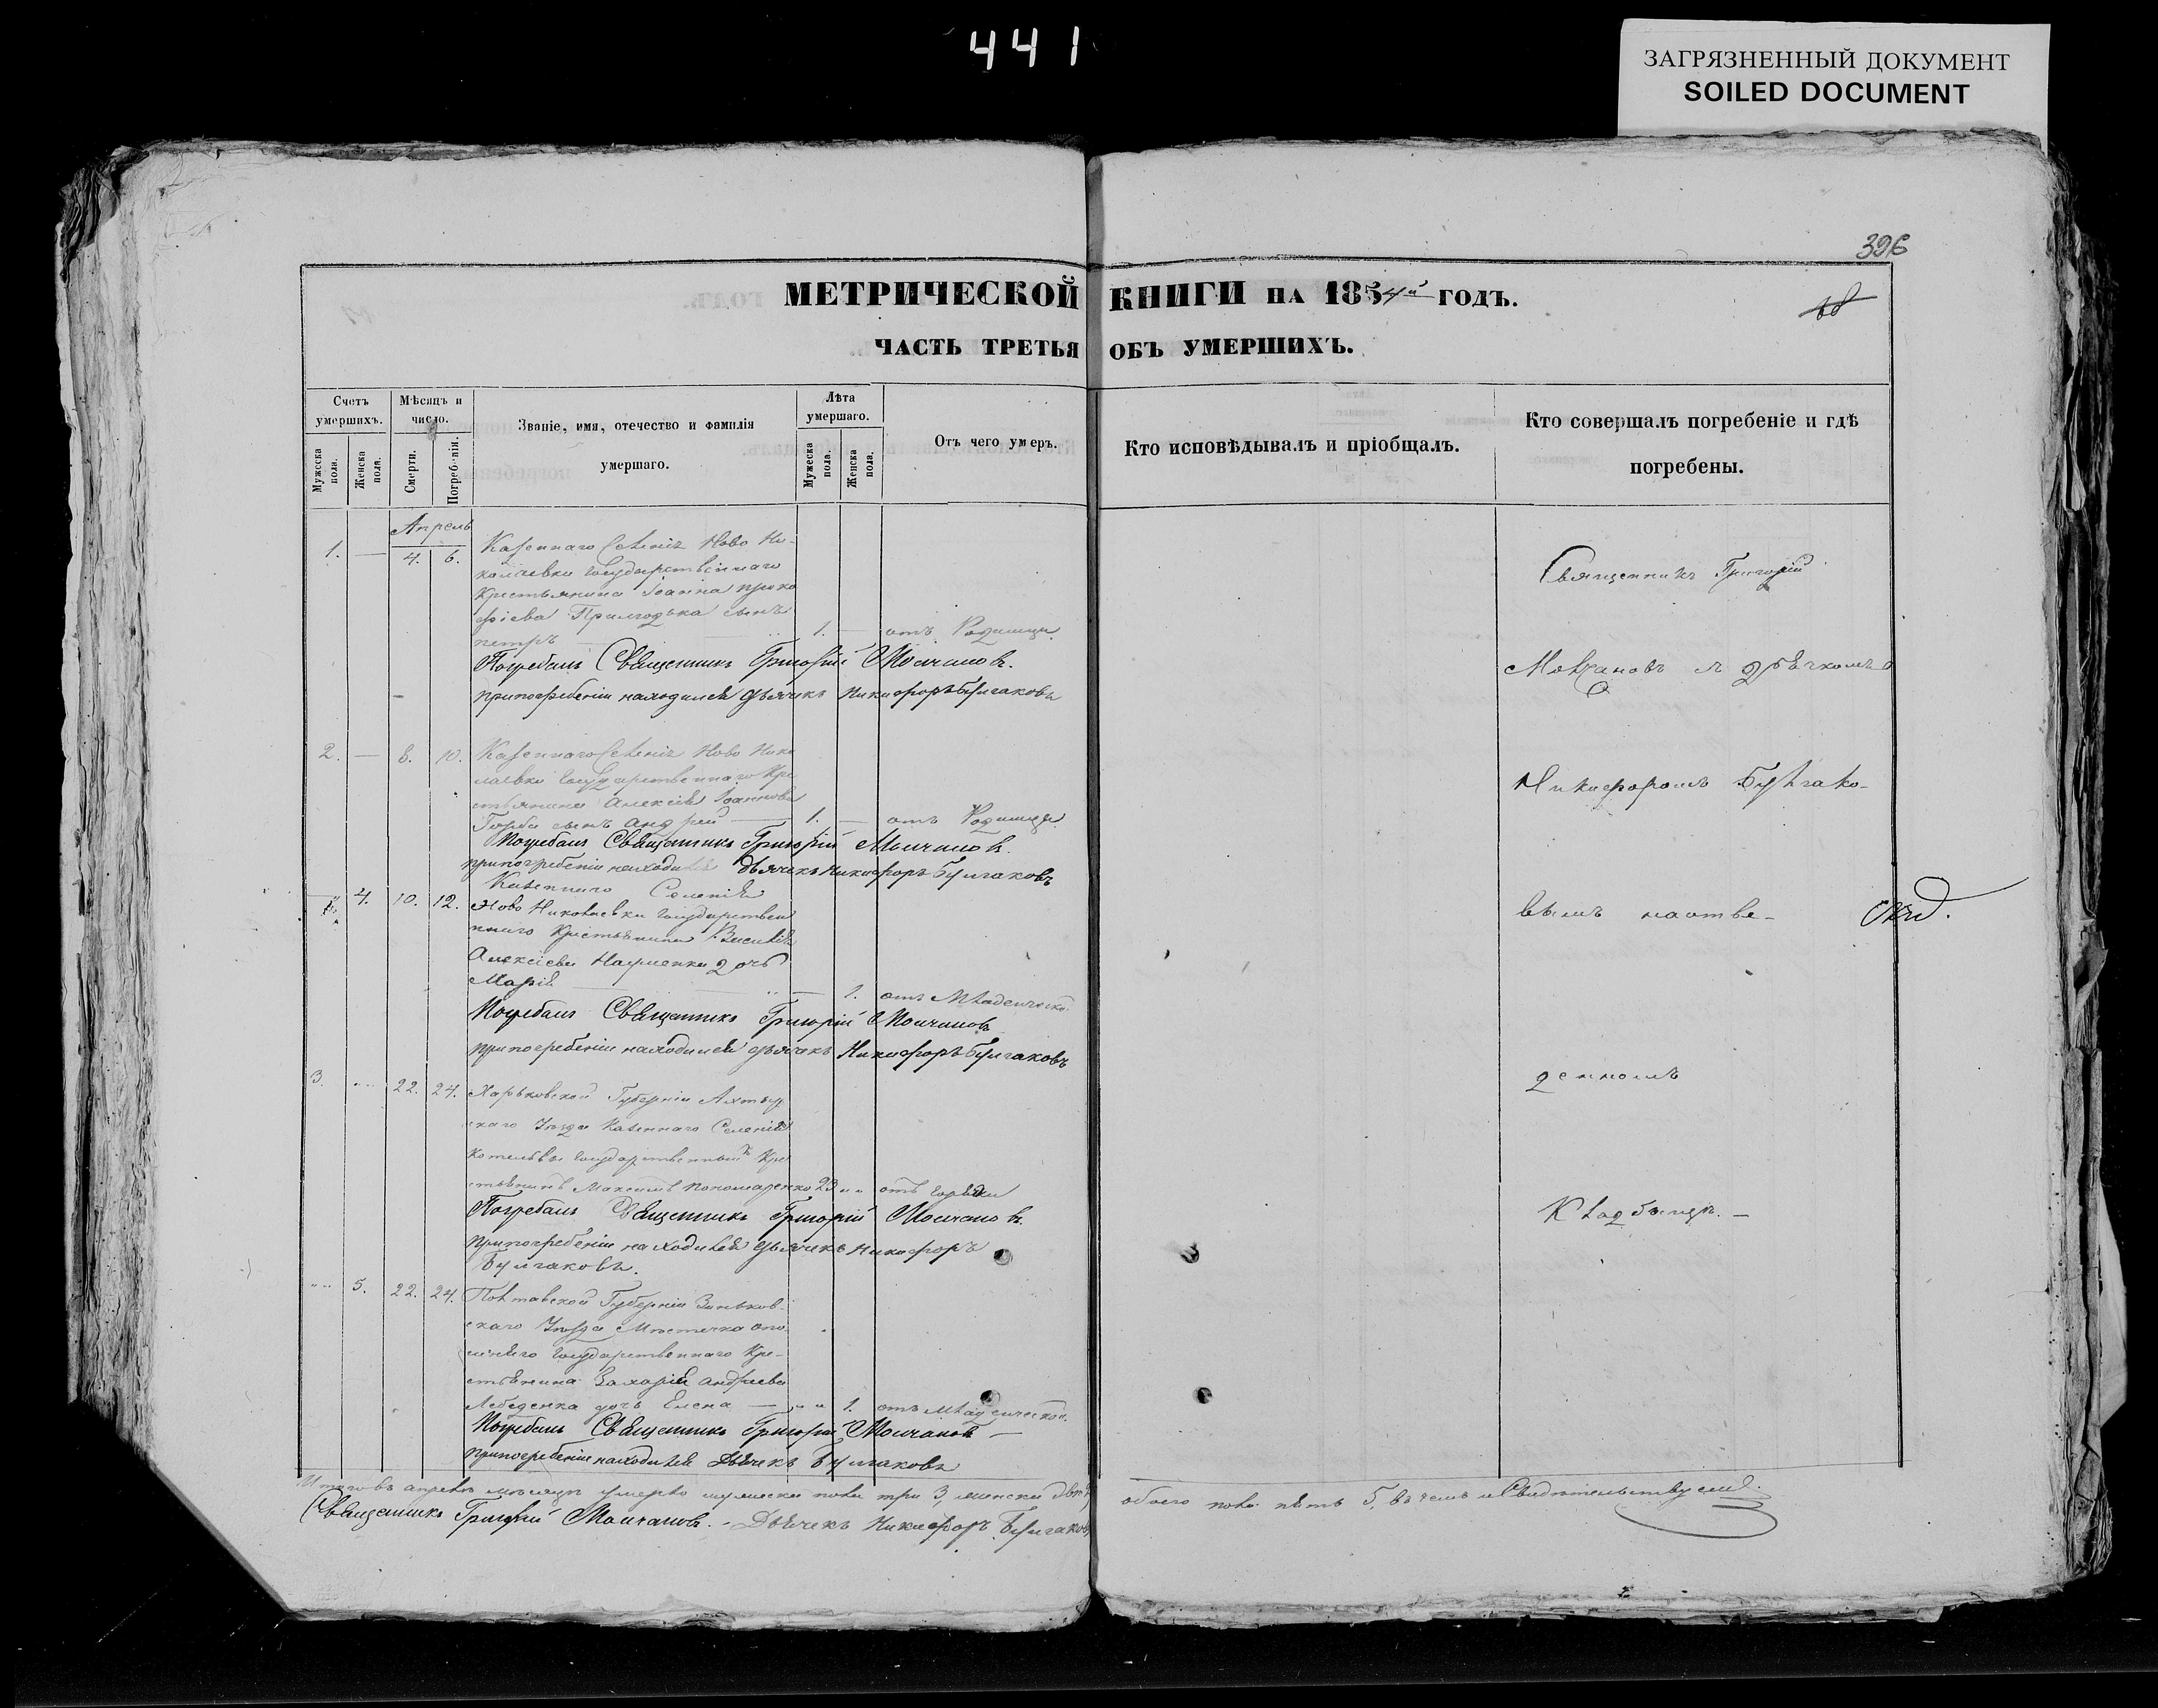 441
ЗАГРЯЗНЕННЫЙ ДОКУМЕНТ
SOILED DOCUMENT
396
МЕТРИЧЕСКОЙ КНИГИ НА 1854й ГОДЪ.
18
ЧАСТЬ ТРЕТЬЯ ОБЪ УМЕРШИХЪ.
Счетъ умершихъ.
Мужеска пола.
Женска пола.
Мѣсяцъ и число.
Смерти.
Погребенія.
Званіе, имя, отечество и фамилія умершаго.
Лѣта умершаго.
Мужеска пола.
Женска пола.
Отъ чего умеръ.
Кто исповѣдывалъ и пріобщалъ.
Кто совершалъ погребеніе и гдѣ погребены.
Апрель
1. — 4. 6. Казеннаго Селенія Ново Ни-
колаевки Государственнаго
Крестьянина Іоанна Проко
фіева Приходька сынъ
петръ — 1. — отъ Родимца
Погребалъ Священникъ Григорій Молчановъ.
припогребеніи находился дьячекъ Никифоръ Булгаковъ
2. — 8. 10. Казеннаго Селенія Ново Нико
лаевки Государственнаго Кре
стьянина Алексія Іоаннова
сынъ Андрей — 1. — отъ Родимца
Погребалъ Священникъ Григорій Молчановъ.
припогребеніи находился дьячекъ Никифоръ Булгаковъ
Казеннаго Селенія
4. 10. 12. Ново Николаевки Государствен
наго Крестьянина Василія
Алексіева Науменки дочь
Марія — 1. отъ Младенческой
Погребалъ Священникъ Григорій Молчановъ
припогребеніи находился дьячекъ Никифоръ Булгаковъ
3. 22. 24. Харьковской Губерніи Ахтыр
скаго Уезда Казеннаго Селенія
Котельвы Государственный Кре
стьянинъ Максимъ Пономаренко 23 отъ горячки
Погребалъ Священникъ Григорій Молчановъ.
припогребеніи находился дьячекъ Никифоръ
Булгаковъ.
5. 22. 24. Полтавской Губерніи Зиньков-
скаго Уезда Мѣстечка Опо
шнего Государственнаго Кре-
стьянина Захарія Андреева
Лебеденка дочь Елена — 1. отъ Младенческой.
Погребалъ Священникъ Григорій Молчановъ —
припогребеніи находился Дьячекъ Булгаковъ
Священникъ Григорій
Молчановъ съ дьячкомъ
Никифоромъ Булгако-
вымъ наотве-
денномъ
Кладбищѣ. —
Итого въ апрелѣ мѣсяцѣ умерло мужеска пола три 3, женска двѣ обоего пола пять 5, въ чемъ и Свидѣтельствуемъ.
Священникъ Григорій Молчановъ. — Дьячекъ Никифоръ Булгаковъ